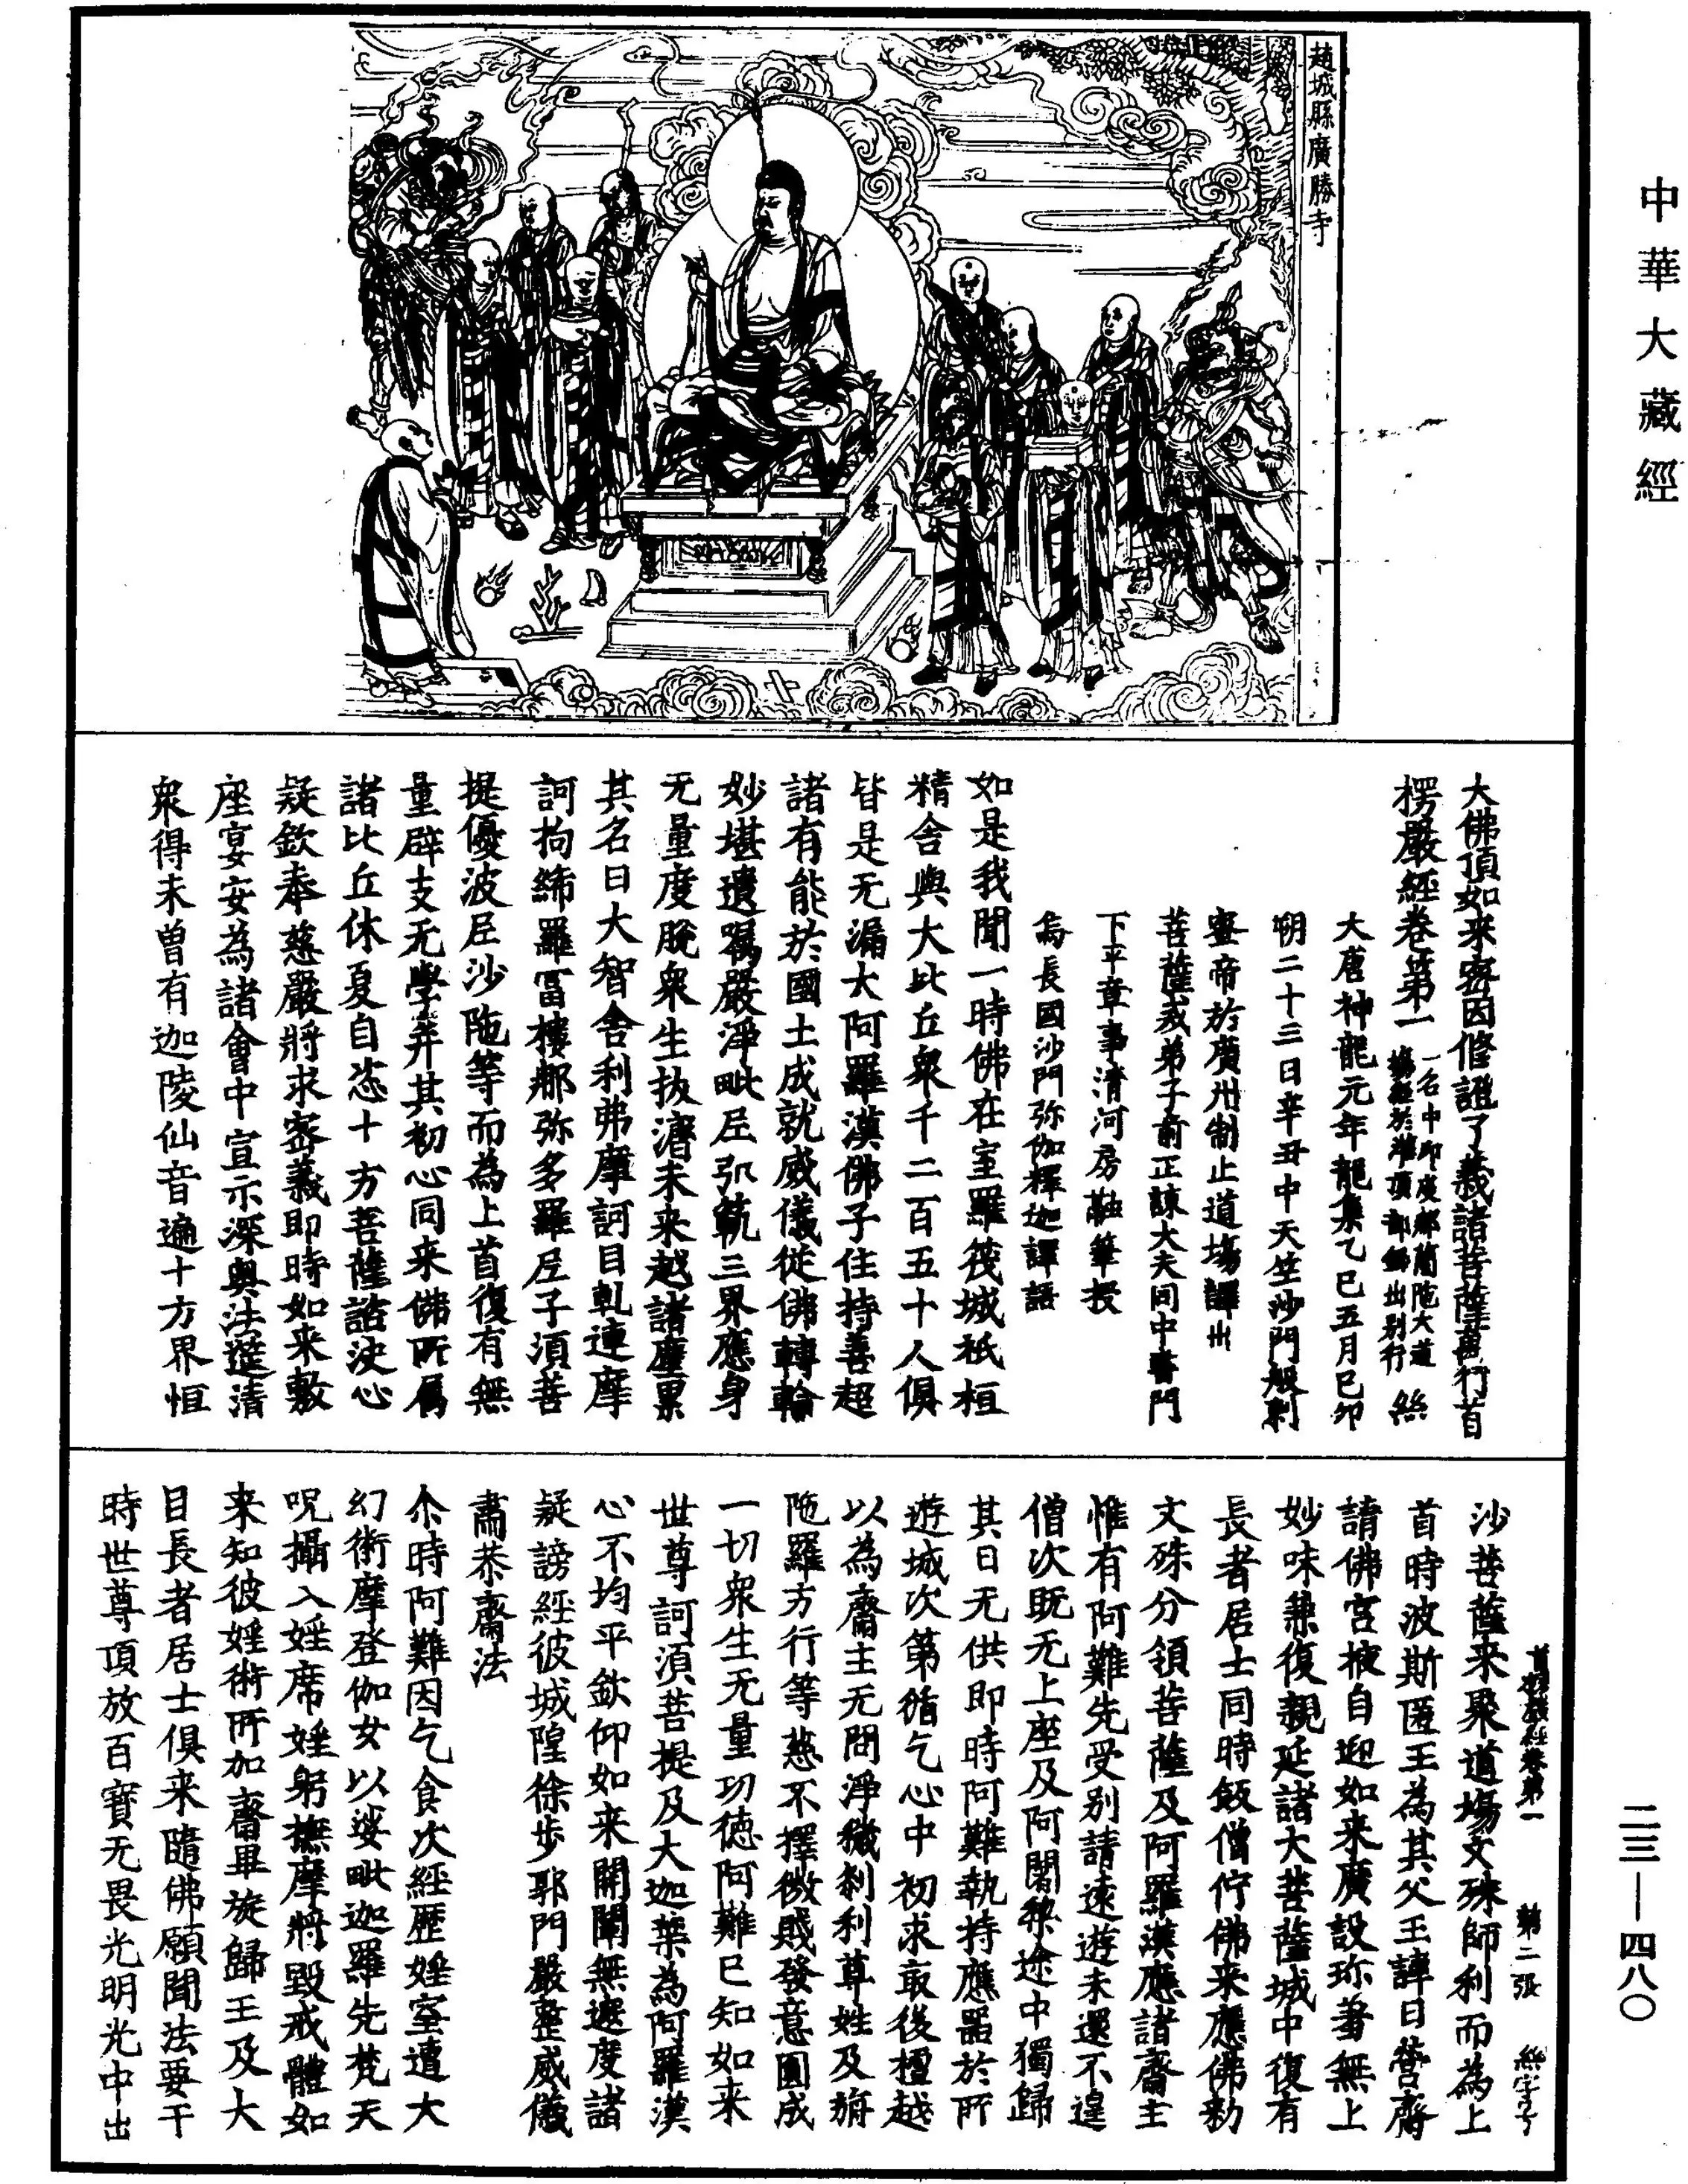 中華大藏經
趙城縣廣勝寺
大佛頂如来密因修證了義諸菩薩萬行首
楞嚴經卷第一 一名中印度那蘭陁大道塲經於灌頂部録出别行 絲
大唐神龍元年龍集乙巳五月己卯
朔二十三日辛丑中天竺沙門般剌
蜜帝於廣州制止道塲譯出
菩薩戒弟子前正諫大夫同中書門
下平章事清河房融筆授
烏長國沙門弥伽釋迦譯語
如是我聞一時佛在室羅筏城祇桓
精舎與大比丘衆千二百五十人俱
皆是无漏大阿羅漢佛子住持善超
諸有能於國土成就威儀從佛轉輪
妙堪遺囑嚴淨毗尼弘範三界應身
无量度脫衆生拔濟未来越諸塵累
其名曰大智舎利弗摩訶目乹連摩
訶拘絺羅冨樓那弥多羅尼子湏菩
提優波尼沙陁等而為上首復有無
量辟支无學并其初心同来佛所属
諸比丘休夏自恣十方菩薩諮決心
疑欽奉慈嚴將求宻義即時如来敷
座宴安為諸會中宣示深奥法筵清
衆得未曽有迦陵仙音遍十方界恒
首楞嚴經卷第一 第二張 絲字号
沙菩薩来聚道塲文殊師利而為上
首時波斯匿王為其父王諱日營齋
請佛宫掖自迎如来廣設珎羞無上
妙味兼復親延諸大菩薩城中復有
長者居士同時飯僧佇佛来應佛勑
文殊分領菩薩及阿羅漢應諸齋主
惟有阿難先受别請遠遊未還不遑
僧次既无上座及阿闍梨途中獨歸
其日无供即時阿難執持應器於所
遊城次第循乞心中初求冣後檀越
以為齋主无問淨穢刹利尊姓及旃
陁羅方行等慈不擇微賤發意圓成
一切衆生无量功徳阿難已知如来
世尊訶湏菩提及大迦葉為阿羅漢
心不均平欽仰如来開闡無遮度諸
疑謗經彼城隍徐歩郭門嚴整威儀
肅恭齋法
尒時阿難因乞食次經歷婬室遭大
幻術摩登伽女以娑毗迦羅先梵天
呪攝入婬席婬躬撫摩將毀戒體如
来知彼婬術所加齋畢旋歸王及大
目長者居士俱来隨佛願聞法要于
時世尊頂放百寳无畏光明光中出
二三—四八〇